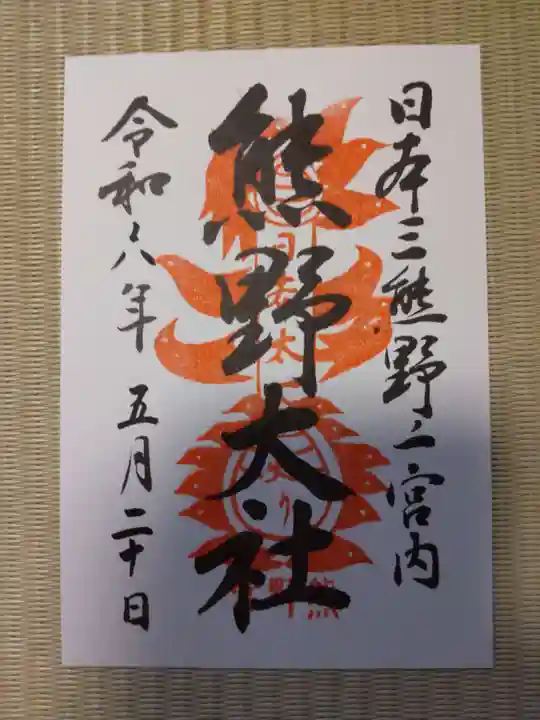 日本三熊野ノ一宮内
熊野大社
令和八年 五月二十日